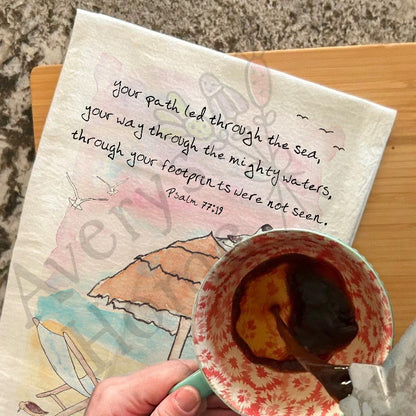 your path led through the sea,
your way through the mighty waters,
through your footprints were not seen.
Psalm 77:19
Avery